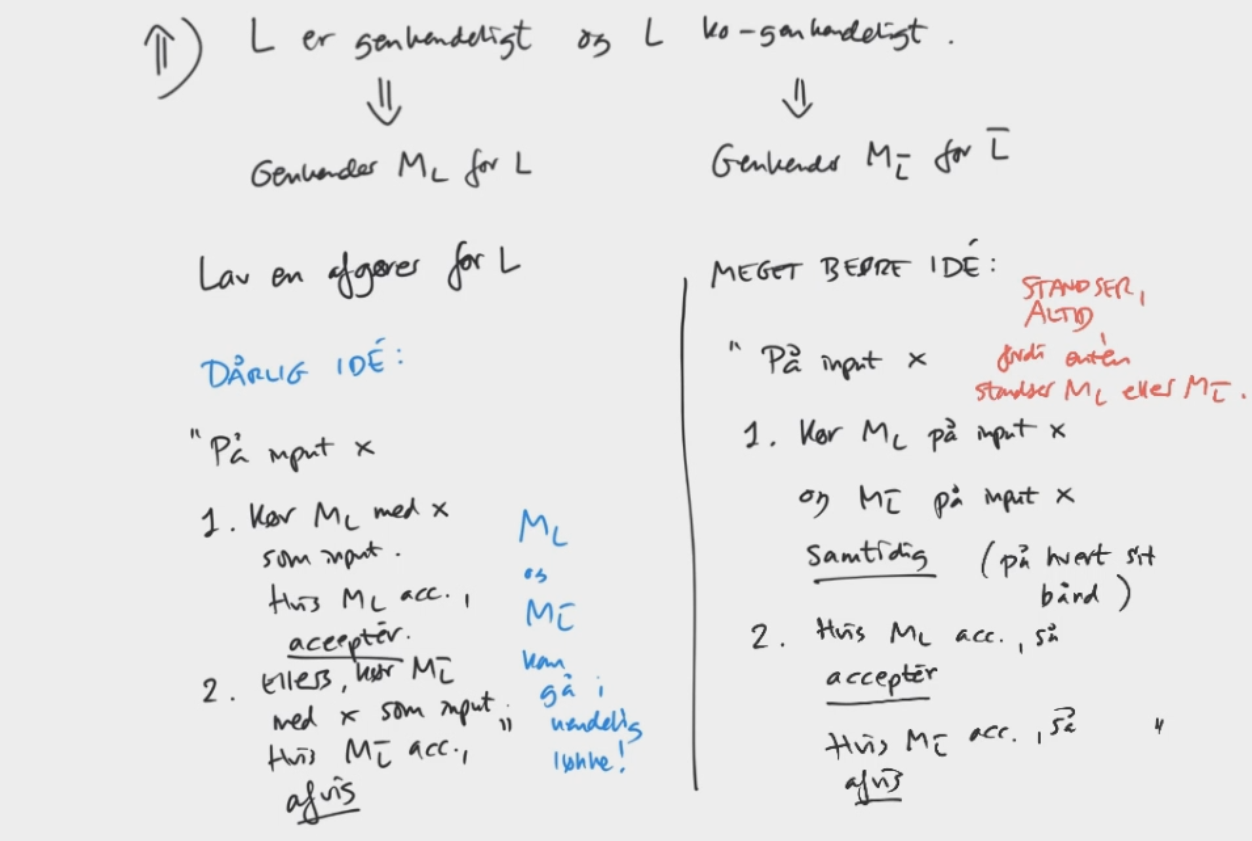 ⇑) L er genkendeligt og L ko-genkendeligt.
⇓ ⇓
Genkender M_L for L
Genkender M_L̅ for L̅
Lav en afgører for L
DÅRLIG IDÉ:
"På input x
1. Kør M_L med x
som input.
Hvis M_L acc.,
acceptér.
2. Ellers, kør M_L̅
med x som input.
Hvis M_L̅ acc., "
afvis
M_L
og
M_L̅
kan
gå i
uendelig
løkke!
MEGET BEDRE IDÉ:
STANDSER,
ALTID,
fordi enten
standser M_L eller M_L̅.
"På input x
1. Kør M_L på input x
og M_L̅ på input x
samtidig (på hvert sit
bånd)
2. Hvis M_L acc., så
acceptér
Hvis M_L̅ acc., så "
afvis